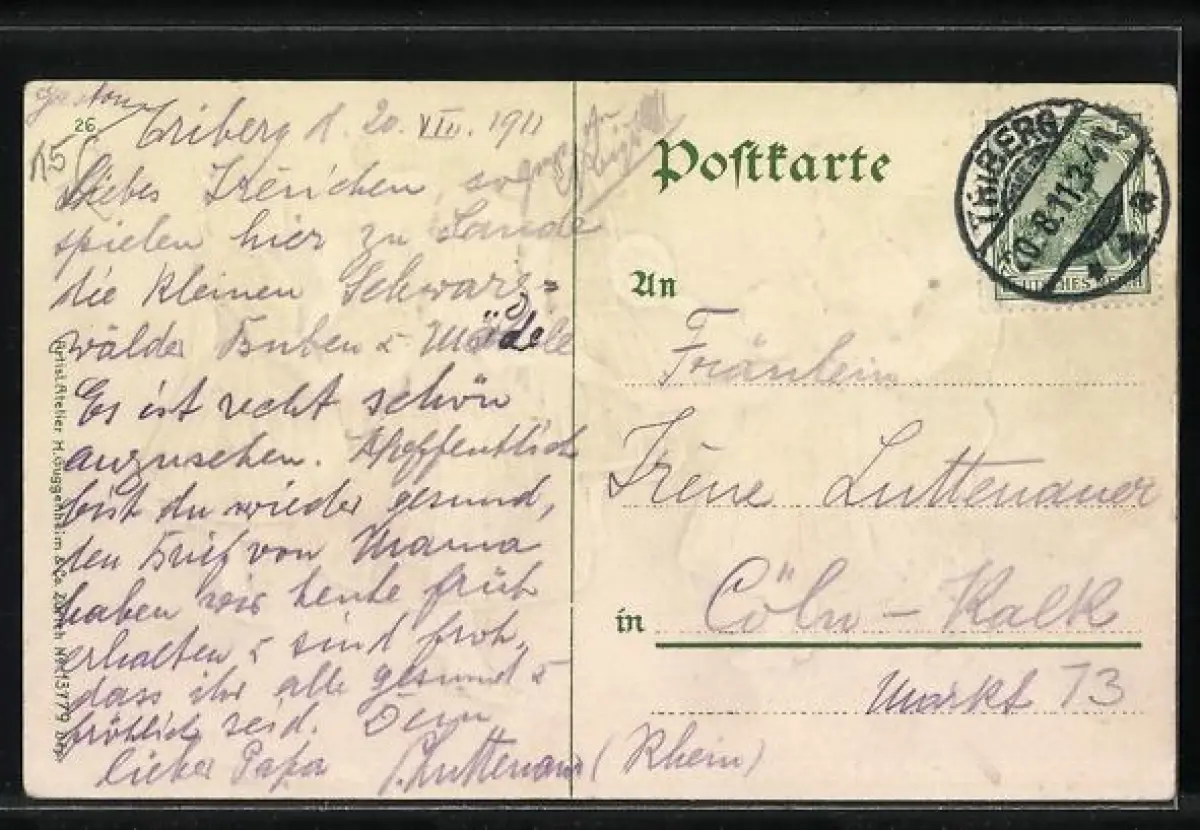 26
Triberg d. 20. VIII. 1911
Liebes Irènchen, so
spielen hier zu Lande
die kleinen Schwarz=
wälder Buben u Mädele
Es ist recht schön
anzusehen. Hoffentlich
bist du wieder gesund,
den Brief von Mama
haben wir heute früh
erhalten u sind froh,
dass ihr alle gesund u
fröhlich seid. Dein
lieber Papa
Luttenauer
Artist. Atelier H. Guggenheim & Co., Zürich No. 13779 Dep.
Postkarte
TRIBERG
20.8.11.3-4N.
DEUTSCHES REICH
An
Fräulein
Irène Luttenauer
in Cöln-Kalk
Markt 13
(Rhein)